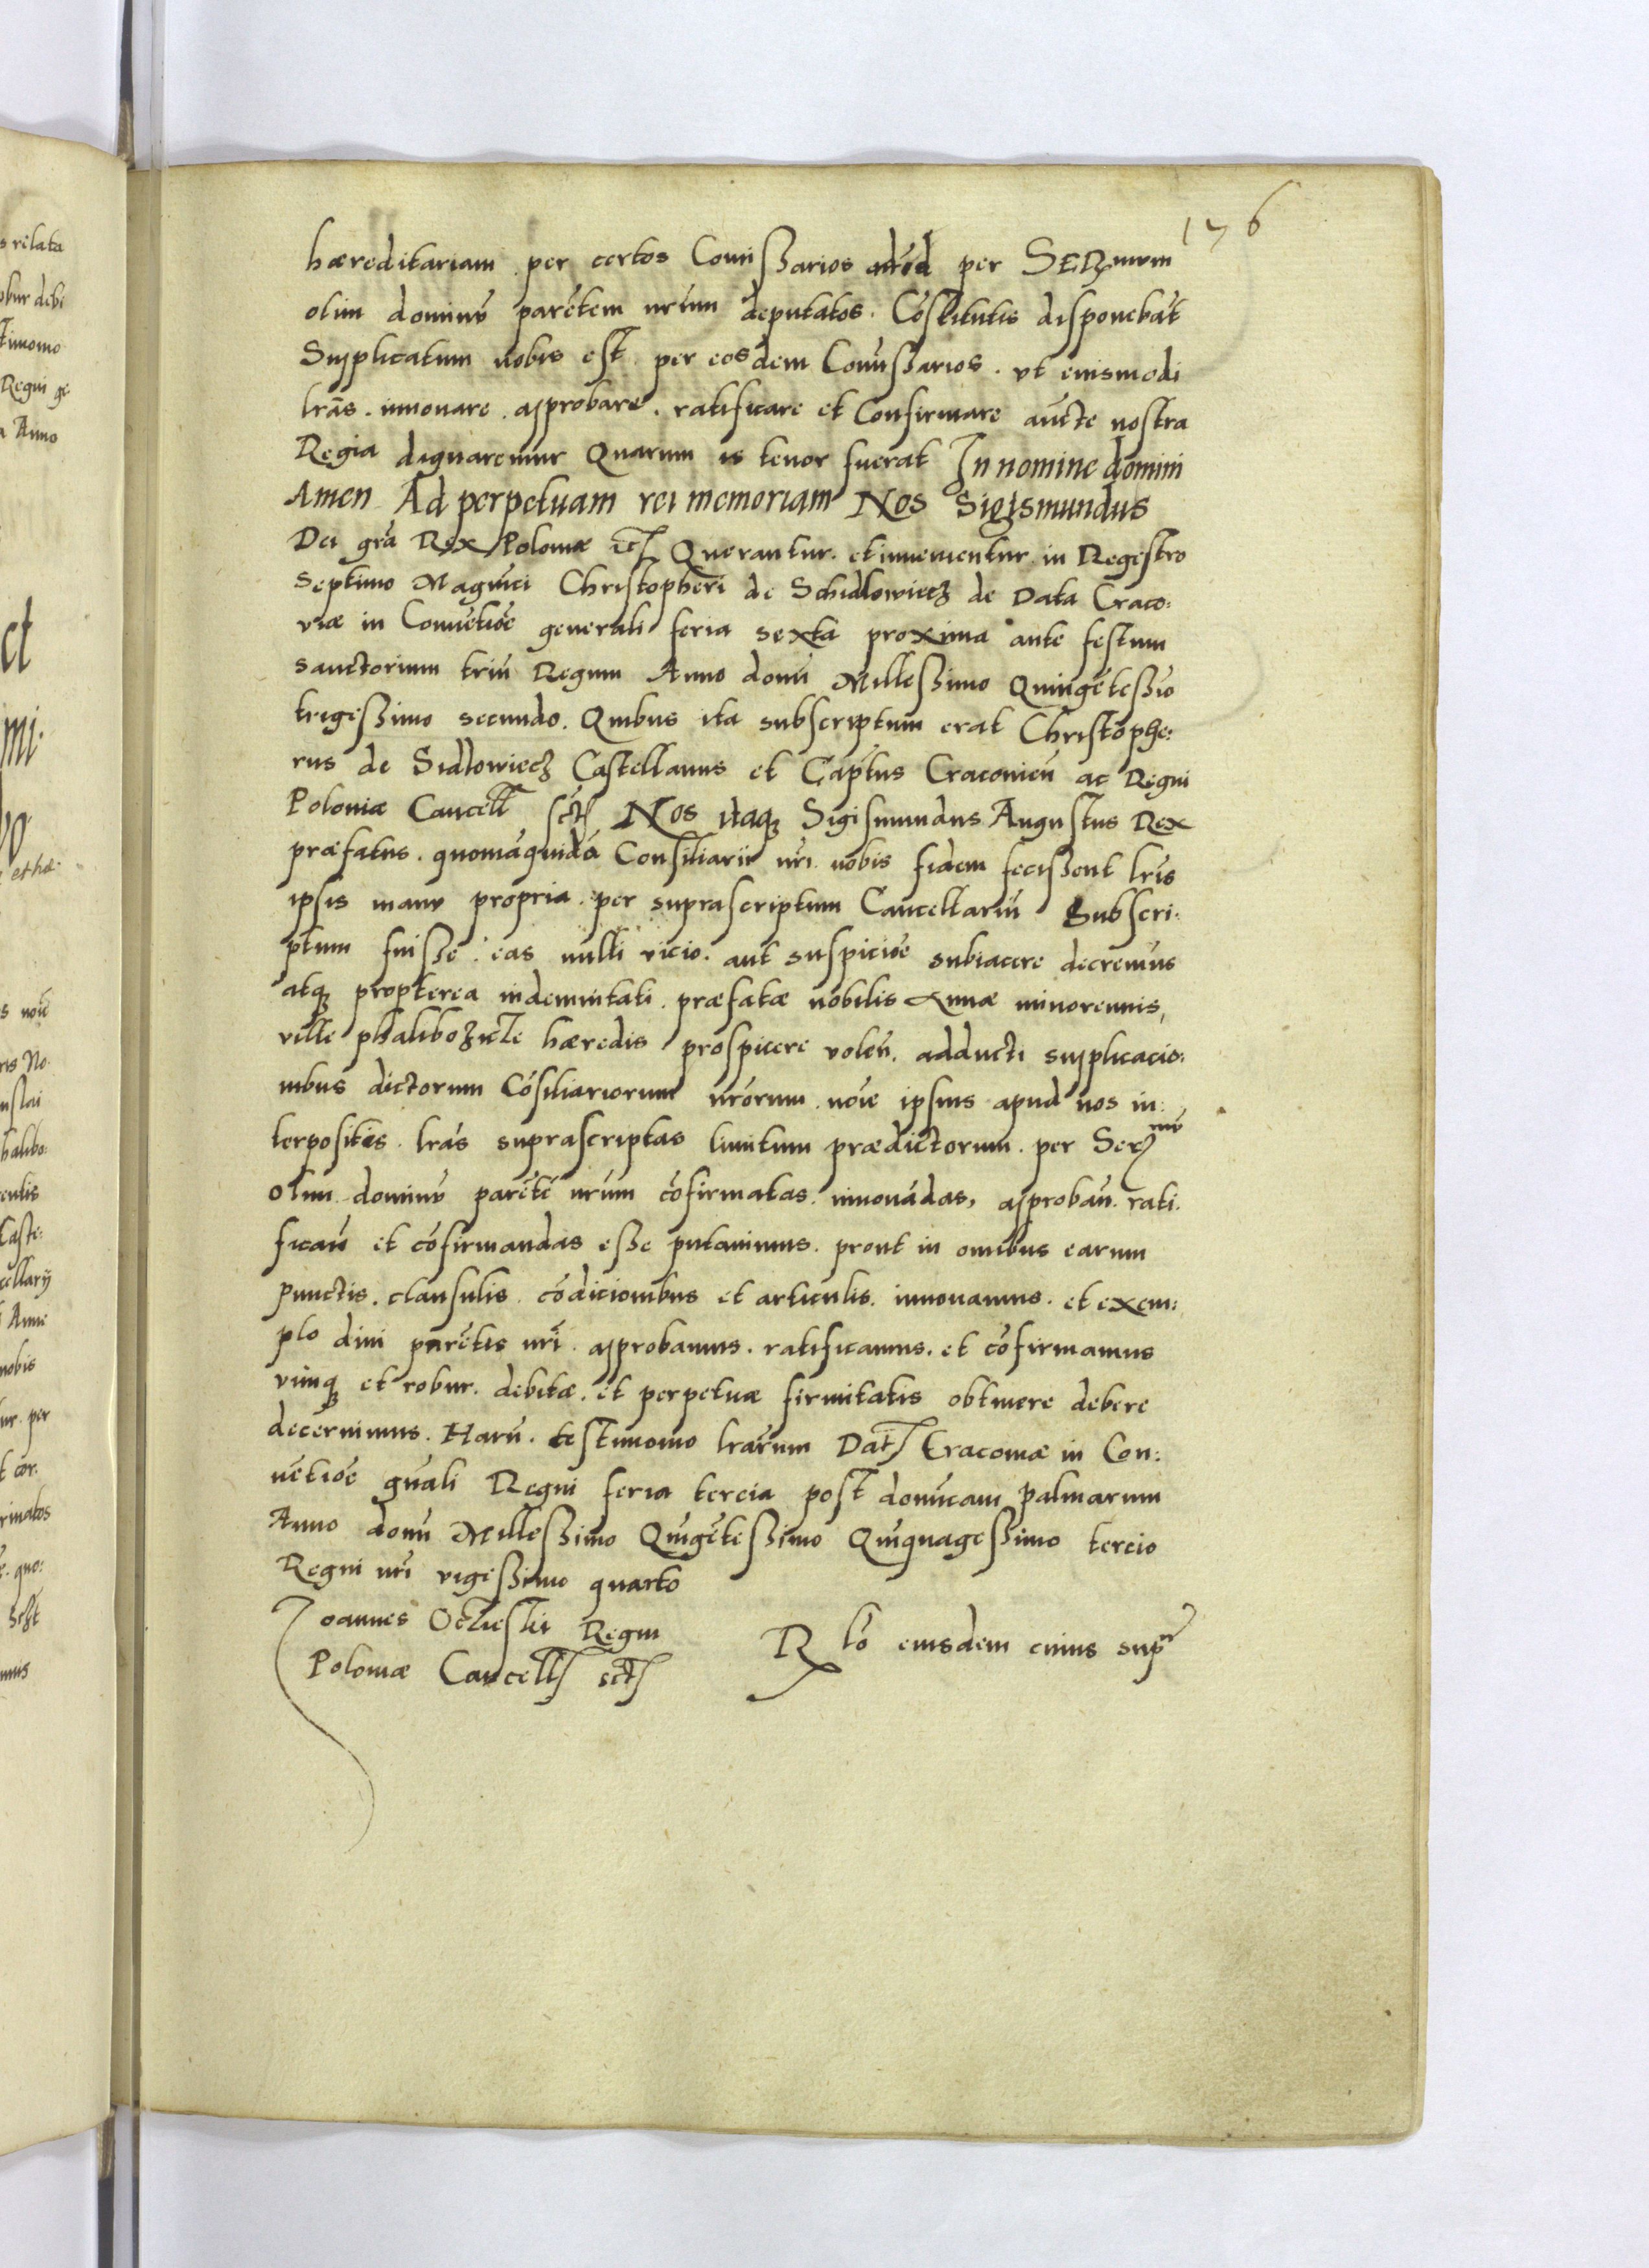 176
hæreditariam per certos Comißarios per SERmum
olim dominũ parẽtem nr̃um deputatos. Cõstitutis disponebãt
Supplicatum nobis est per eosdem Comißarios. vt eiusmodi
lrãs. innouare. approbare. ratificare et Confirmare aũcte nostra
Regia dignaremur Quarum is tenor fuerat In nomine domini
Amen Ad perpetuam rei memoriam Nos Sigismundus
Dei grã Rex Poloniæ etc̃ Querantur. et inuenientur in Regestro
septimo Magnĩci Christopheri de Schidlowiecz de Data Craco:
uiæ in Conuẽtiõe generali feria sexta proxima ante festum
sanctorium triũ Regum Anno domĩ Milleßimo Quingẽteßĩo
trigeßimo secundo. Quibus ita subscriptum erat Christophe:
rus de Sidlowiecz Castellanus et Cap̃tus Cracouieñ ac Regni
Poloniæ Cancell sct̃ Nos itaq̃ Sigismundus Augustus Rex
præfatus. quoniãquidã Consiliarii nr̃i nobis fidem fecißent lrĩs
ipsis manu propria per suprascriptum Cancellariũ Subscri:
ptum fuiße. eas nulli vicio. aut suspiciõe subiacere decreuimus
atq̃ propterea indemnitati præfatæ nobilis Annæ minorennis,
ville phalibozicze hæredis prospicere voleñ. adducti supplicacio:
nibus dictorum Cõsiliariorum nr̃orum noĩe ipsius apud nos in:
terpositis. lrãs suprascriptas limitum prædictorum. per Serᵐᵘ̃
olim dominũ parẽtẽ nr̃um cõfirmatas innouãdas, approbañ. rati.
ficañ et cõfirmandas eße putauimus. prout in omibus earum
punctis. clausulis cõdicionibus et articulis. innouamus. et exem:
plo diui parẽtis nr̃i approbamus. ratificamus. et cõfirmamus
vimq̃ et robur. debitæ. et perpetuæ firmitatis obtinere debere
decernimus. Harũ. testimonio lrãrum Dat̃ Cracouiæ in Con:
uẽtiõe gñali Regni feria tercia post domĩcam palmarum
Anno domĩ Milleßimo Quĩgẽteßimo Quĩquageßimo tercio
Regni nr̃i vigeßimo quarto
Joannes Oczieski Regni
Poloniæ Cancell sct̃
R lõ eiusdem cuius sup̃